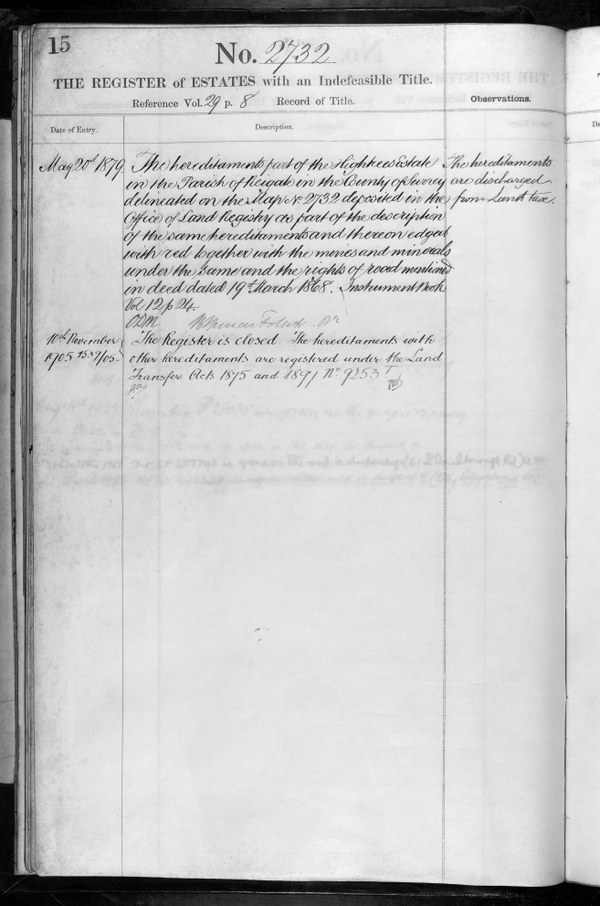 15
No. 2732
THE REGISTER of ESTATES with an Indefeasible Title.
Reference Vol. 29 p. 8 Record of Title.
Observations.
Date of Entry.
Description.
May 20th 1879.
The hereditaments part of the Highlees Estate
in the Parish of Reigate in the County of Surrey
delineated on the Map No 2732 deposited in the
Office of Land Registry as part of the description
of the same hereditaments and thereon edged
with red together with the mines and minerals
under the same and the rights of road mentioned
in deed dated 19th March 1868. Instrument Book
Vol 12 p 24.
The hereditaments
are discharged
from Land tax.
10th November
1905
The Register is closed The hereditaments with
other hereditaments are registered under the Land
Transfer Acts 1875 and 1897 No. 9253